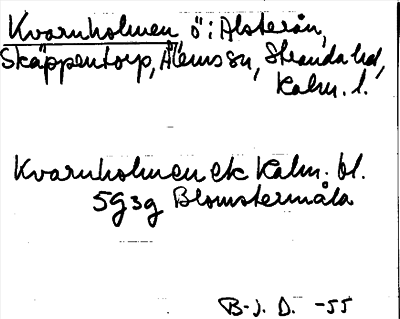 Kvarnholmen, ö i Alsterån,
Skäppentorp, Ålems sn, Stranda hd,
Kalm. l.
Kvarnholmen ek Kalm. bl.
5G3g Blomstermåla
B-J. D. -55